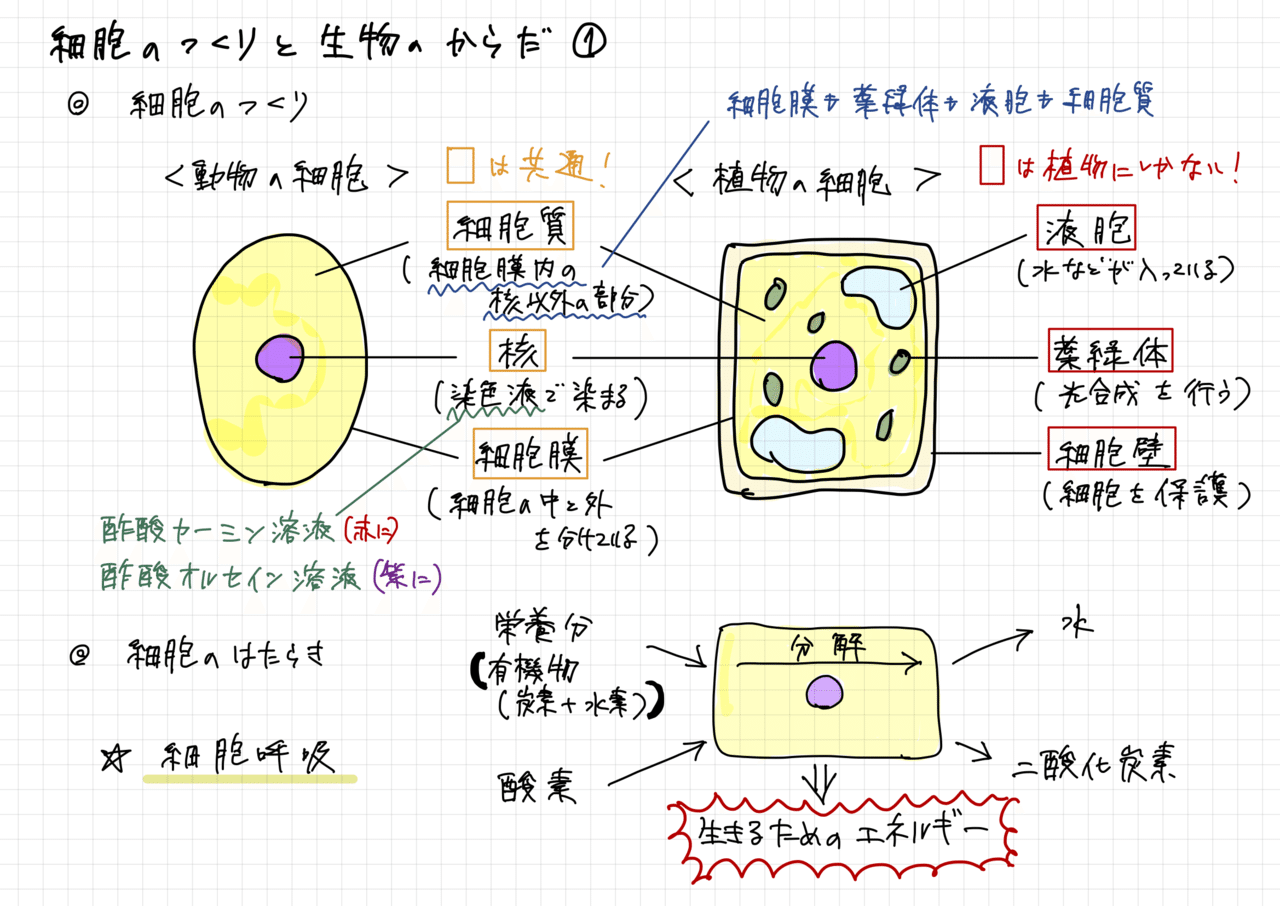 細胞のつくりと生物のからだ①
◎ 細胞のつくり
細胞膜+葉緑体+液胞+細胞質
<動物の細胞>
□は共通!
<植物の細胞>
□は植物にしかない!
細胞質
(細胞膜内の
核以外の部分)
液胞
(水などが入っている)
核
(染色液で染まる)
葉緑体
(光合成を行う)
細胞膜
(細胞の中と外
を分けている)
細胞壁
(細胞を保護)
酢酸カーミン溶液(赤に)
酢酸オルセイン溶液(紫に)
◎ 細胞のはたらき
☆ 細胞呼吸
栄養分
(有機物
(炭素+水素))
酸素
分解
水
二酸化炭素
生きるためのエネルギー